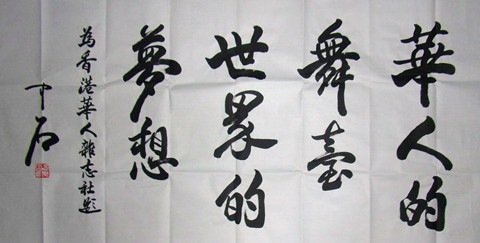 華人的
舞臺
世界的
夢想
為香港華人雜志社題
中石